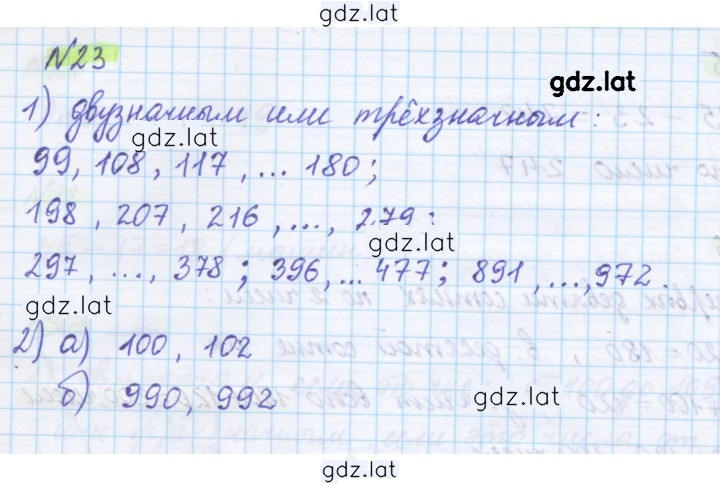 gdz.lat
№23
gdz.lat
1) двузначным или трёхзначным:
gdz.lat
99, 108, 117, ... 180;
198, 207, 216, ..., 279;
gdz.lat
297, ..., 378; 396, ... 477; 891, ..., 972.
gdz.lat
2) а) 100, 102
б) 990, 992
gdz.lat
gdz.lat